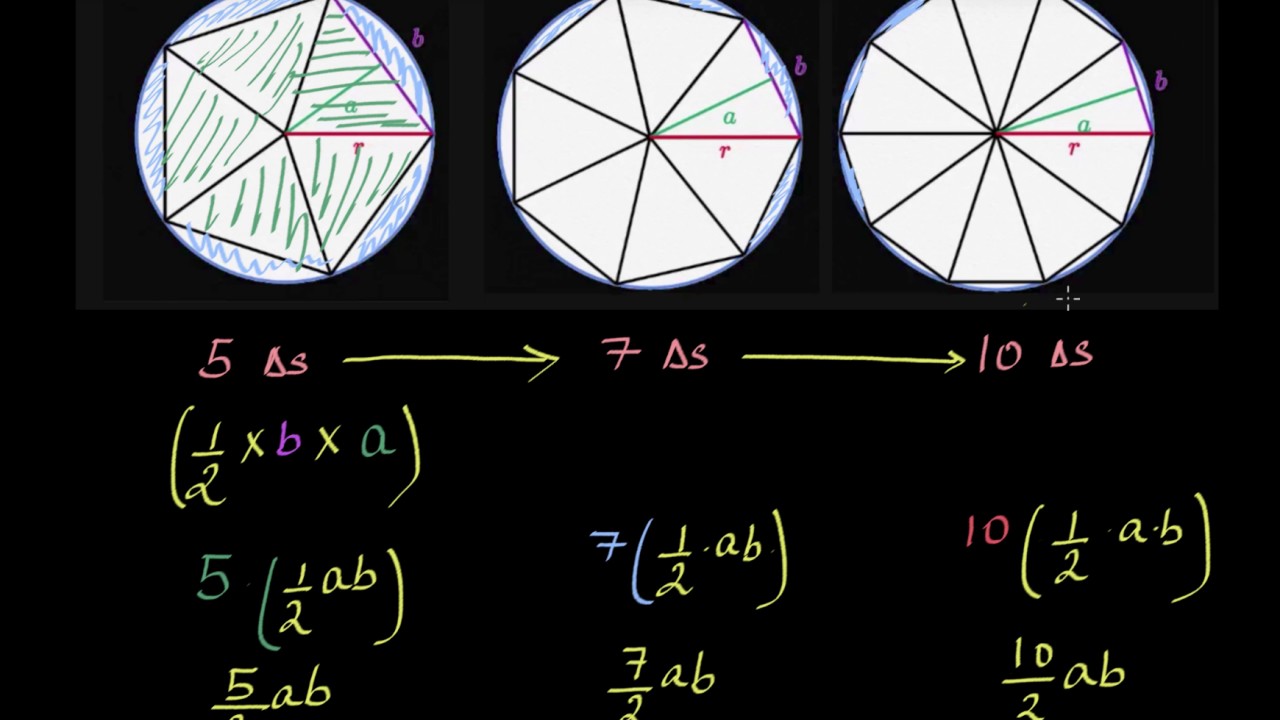 b
a
r
b
a
r
b
a
r
5 Δs → 7 Δs → 10 Δs
(1/2 × b × a)
5 · (1/2 ab) 7(1/2 · ab) 10(1/2 · a · b)
5/2 ab 7/2 ab 10/2 ab